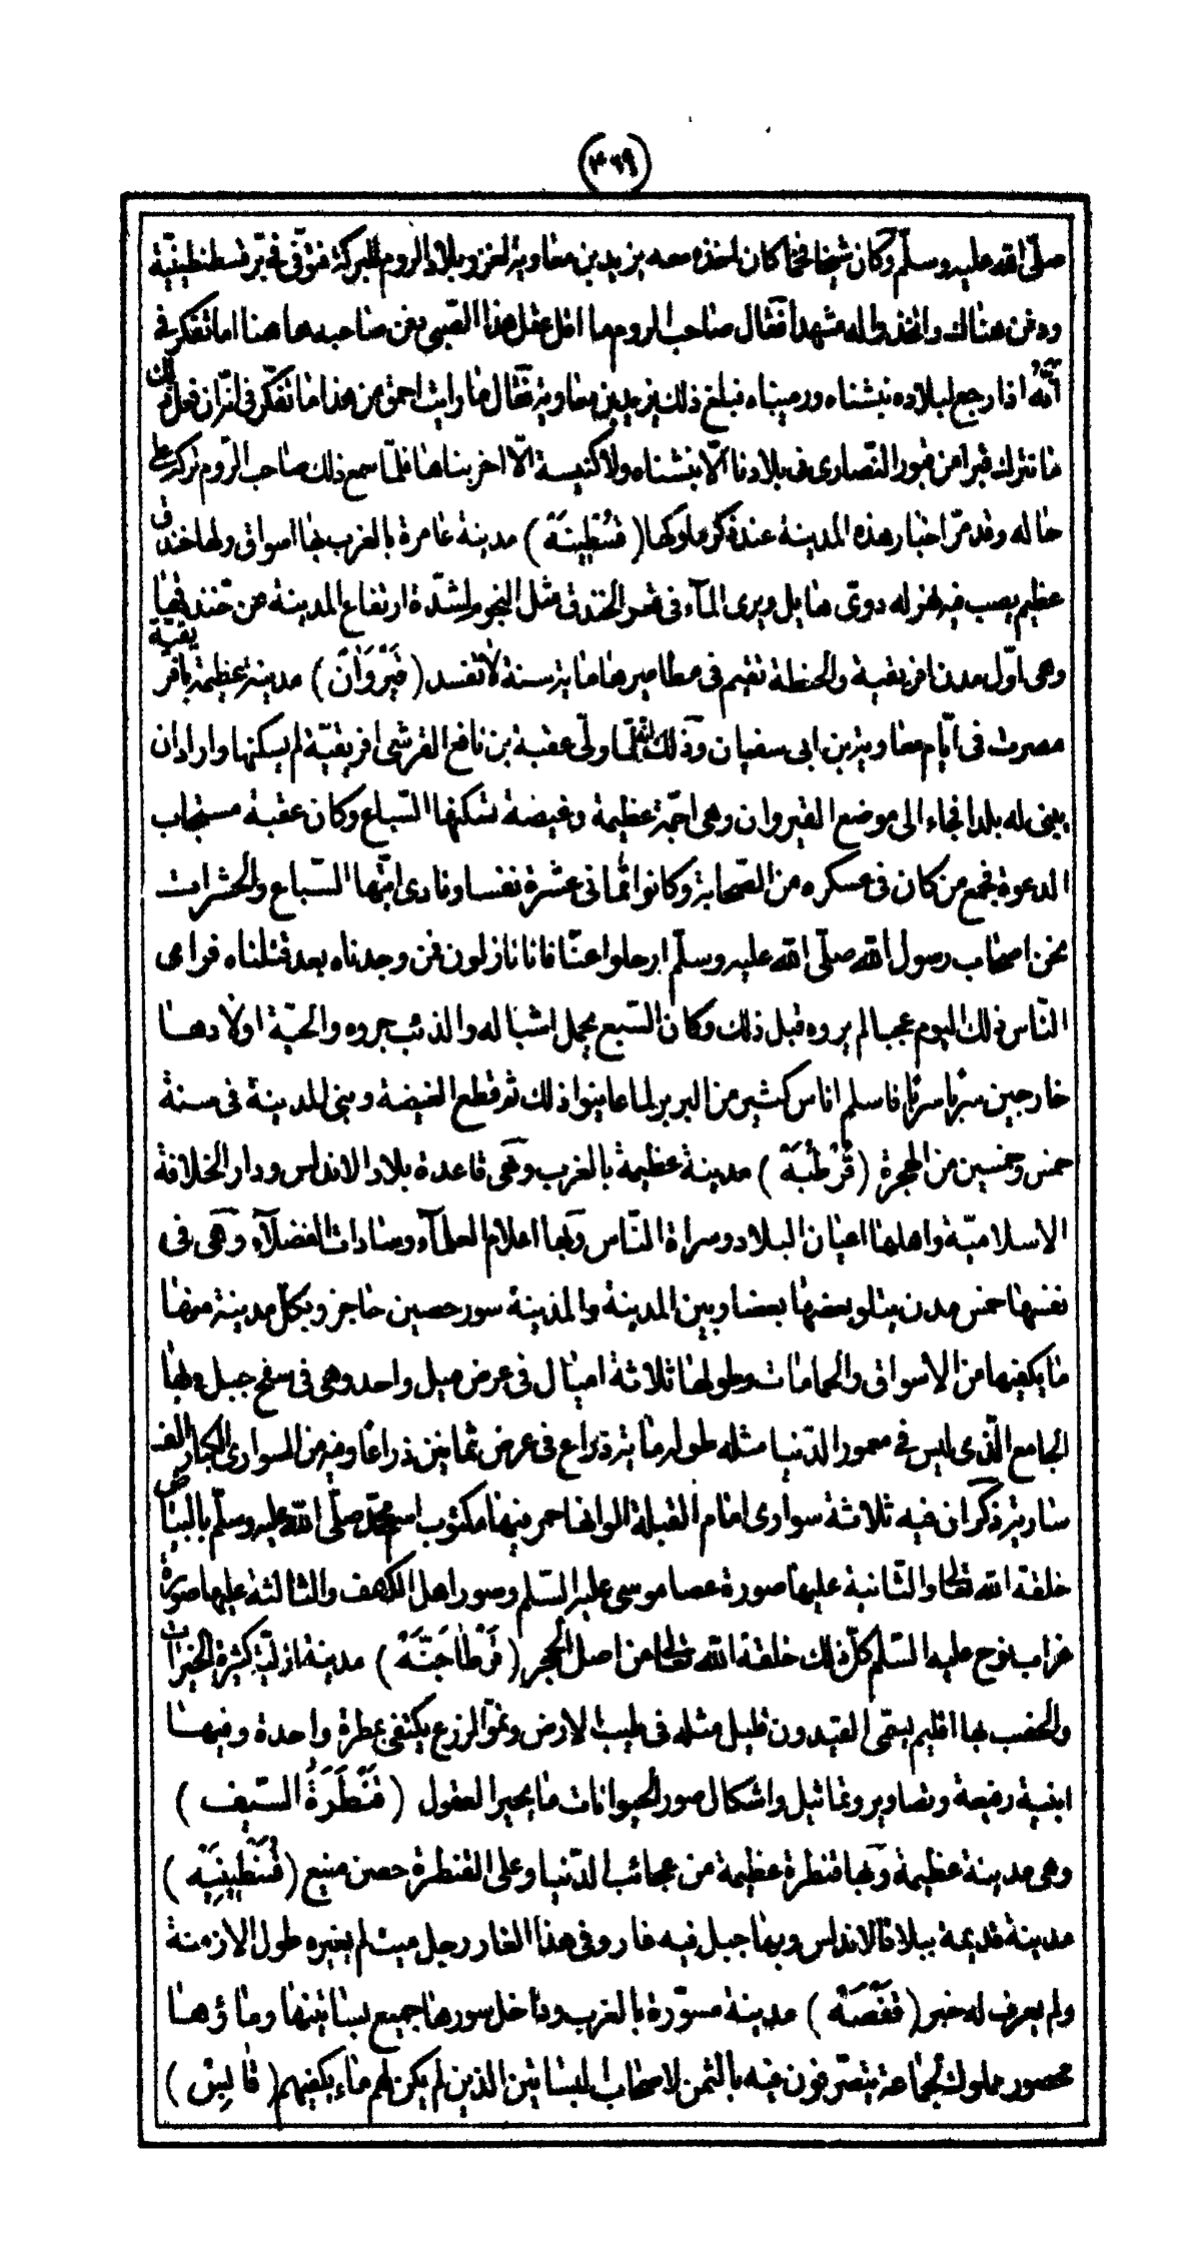 (٤٦٩)
صلّى الله عليه وسلّم وكان شيخا فخما كان اخذه معه يزيد بن معاوية لغزو بلاد الروم للبركة فتوفّى في برّ قسطنطينيّة
ودفن هناك واتخذوا له مشهدا فقال صاحب الروم ما اقل عقل هذا الصبى دفن صاحبه هاهنا اما تفكر في
أنّه اذا رجع لبلاده نبشناه ورميناه فبلغ ذلك يزيد بن معاوية فقال ما رايت احمق من هذا ما تفكّر في انّه ان فعل ذلك
ما نترك قبرا من قبور النصارى في بلادنا الّا نبشناه ولا كنيسة الّا اخربناها فلمّا سمع ذلك صاحب الرّوم تركه على
حاله وقد مرّ اخبار هذه المدينة عند ذكر ملوكها (قُسْطِينَةُ) مدينة عامرة بالغرب بها اسواق ولها خندق
عظيم يصب فيه نهر له دوىّ هايل ويرى المآء في قعر الخندق مثل النجوم لشدّة ارتفاع المدينة من خندقها
وهى اوّل مدن افريقية والحنطة تقيم في مطاميرها ماية سنة لا تفسد (قَيْرَوَانُ) مدينة عظيمة بافريقيّة
مصرت في ايّام معاوية بن ابى سفيان وذلك انّه لمّا ولّى عقبة بن نافع القرشى افريقيّة لم يسكنها واراد ان
يبنى له بلدا فجاء الى موضع القيروان وهى اجمّة عظيمة وغيضة تسكنها السّباع وكان عقبة مستجاب
الدعوة فجمع من كان في عسكره من الصّحابة وكانوا ثمانى عشرة نفسا ونادى ايّتها السّباع والحشرات
نحن اصحاب رسول الله صلّى الله عليه وسلّم ارحلوا عنّا فانا نازلون فمن وجدناه بعد قتلناه فراى
النّاس ذلك اليوم عجبا لم يروه قبل ذلك وكان السّبع يحمل اشباله والذئب جروه والحيّة اولادها
خارجين سربا سربا فاسلم اناس كثير من البربر لما عاينوا ذلك ثم قطع الغيضة وبنى المدينة في سنة
خمس وخمسين من الهجرة (قُرْطُبَةُ) مدينة عظيمة بالغرب وهى قاعدة بلاد الاندلس ودار الخلافة
الاسلاميّة واهلها اعيان البلاد وسراة النّاس وبها اعلام العلمآء وسادات الفضلآء وهى في
نفسها خمس مدن يتلو بعضها بعضا وبين المدينة والمدينة سور حصين حاجز وبكلّ مدينة منها
ما يكفيها من الاسواق والحمامات وطولها ثلاثة اميال في عرض ميل واحد وهى في سفح جبل وبها
الجامع الّذى ليس في معمور الدّنيا مثله طوله ماية ذراع في عرض ثمانين ذراعا وفيه من السوارى الكبار الف
سارية ذكر ان فيه ثلاثة سوارى امام القبلة الوانها حمر فيها مكتوب اسم محمّد صلّى الله عليه وسلّم بالبياض
خلقة الله تعالى والثانية عليها صورة عصا موسى عليه السّلم وصور اهل الكهف والثالثة عليها صورة
غراب نوح عليه السّلم كلّ ذلك خلقة الله تعالى من اصل الحجر (قَرْطَاجَنَّةُ) مدينة ازليّة كثيرة الخيرات
والخصب بها اقليم يسمّى الفيدون قليل مثله في طيب الارض ونموّ الزرع يكتفى بمطرة واحدة وفيها
ابنية رفيعة وتصاوير وتماثيل واشكال صور الحيوانات ما يحير العقول (قَنْطَرَةُ السّيف)
وهى مدينة عظيمة وبها قنطرة عظيمة من عجائب الدّنيا وعلى القنطرة حصن منيع (قُسْطِينِيَه)
مدينة قديمة ببلاد الاندلس وبها جبل فيه غار وفى هذا الغار رجل ميت لم يغيره طول الازمنة
ولم يعرف له خبر (قَفْصَةُ) مدينة مسوّرة بالغرب وداخل سورها جميع بساتينها وماؤها
محصور مملوك لجماعة يتصرّفون فيه بالثمن لاصحاب البساتين الذين لم يكن لهم ماء يكفيهم (قَابِسُ)